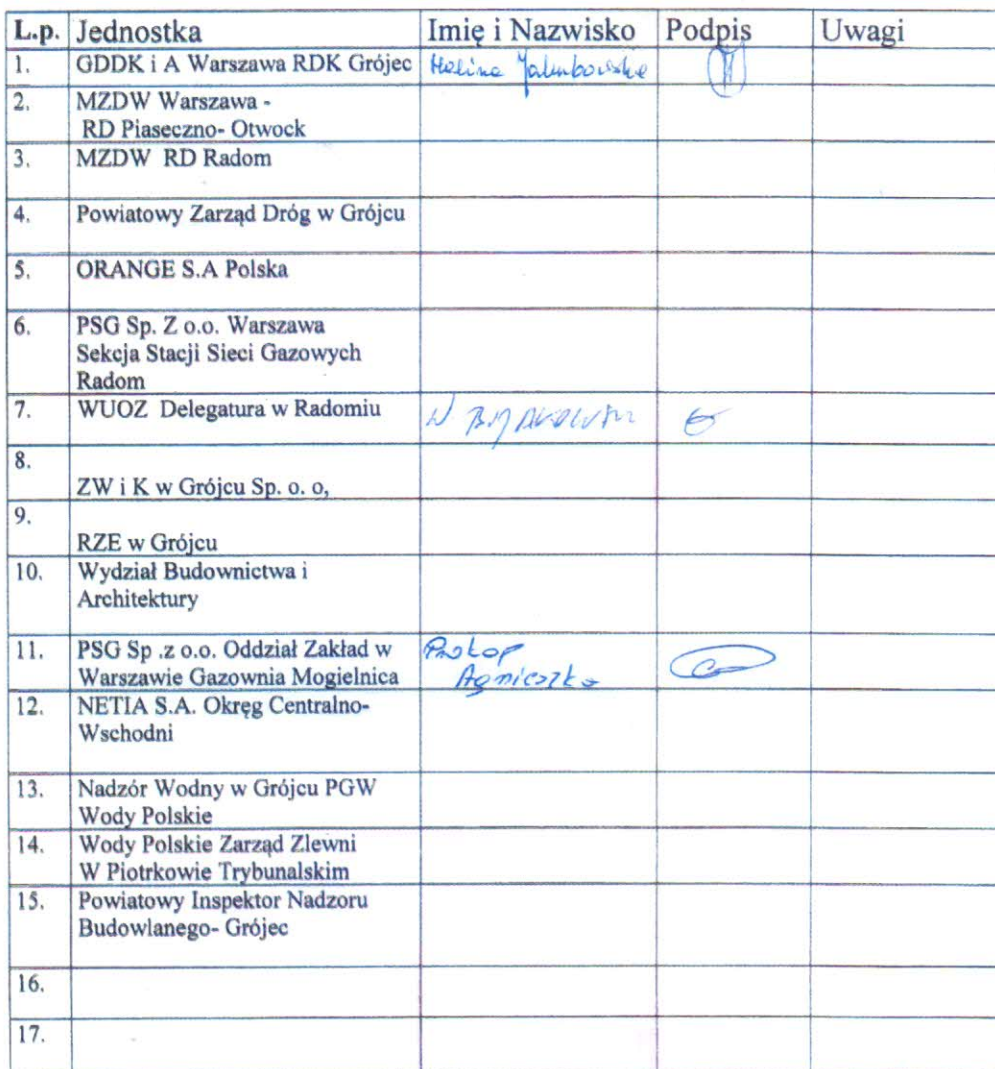 L.p. Jednostka Imię i Nazwisko Podpis Uwagi
1. GDDK i A Warszawa RDK Grójec Halina
2. MZDW Warszawa -
RD Piaseczno- Otwock
3. MZDW RD Radom
4. Powiatowy Zarząd Dróg w Grójcu
5. ORANGE S.A Polska
6. PSG Sp. Z o.o. Warszawa
Sekcja Stacji Sieci Gazowych
Radom
7. WUOZ Delegatura w Radomiu
8.
ZW i K w Grójcu Sp. o. o,
9.
RZE w Grójcu
10. Wydział Budownictwa i
Architektury
11. PSG Sp .z o.o. Oddział Zakład w Prokop
Warszawie Gazownia Mogielnica Agnieszka
12. NETIA S.A. Okręg Centralno-
Wschodni
13. Nadzór Wodny w Grójcu PGW
Wody Polskie
14. Wody Polskie Zarząd Zlewni
W Piotrkowie Trybunalskim
15. Powiatowy Inspektor Nadzoru
Budowlanego- Grójec
16.
17.